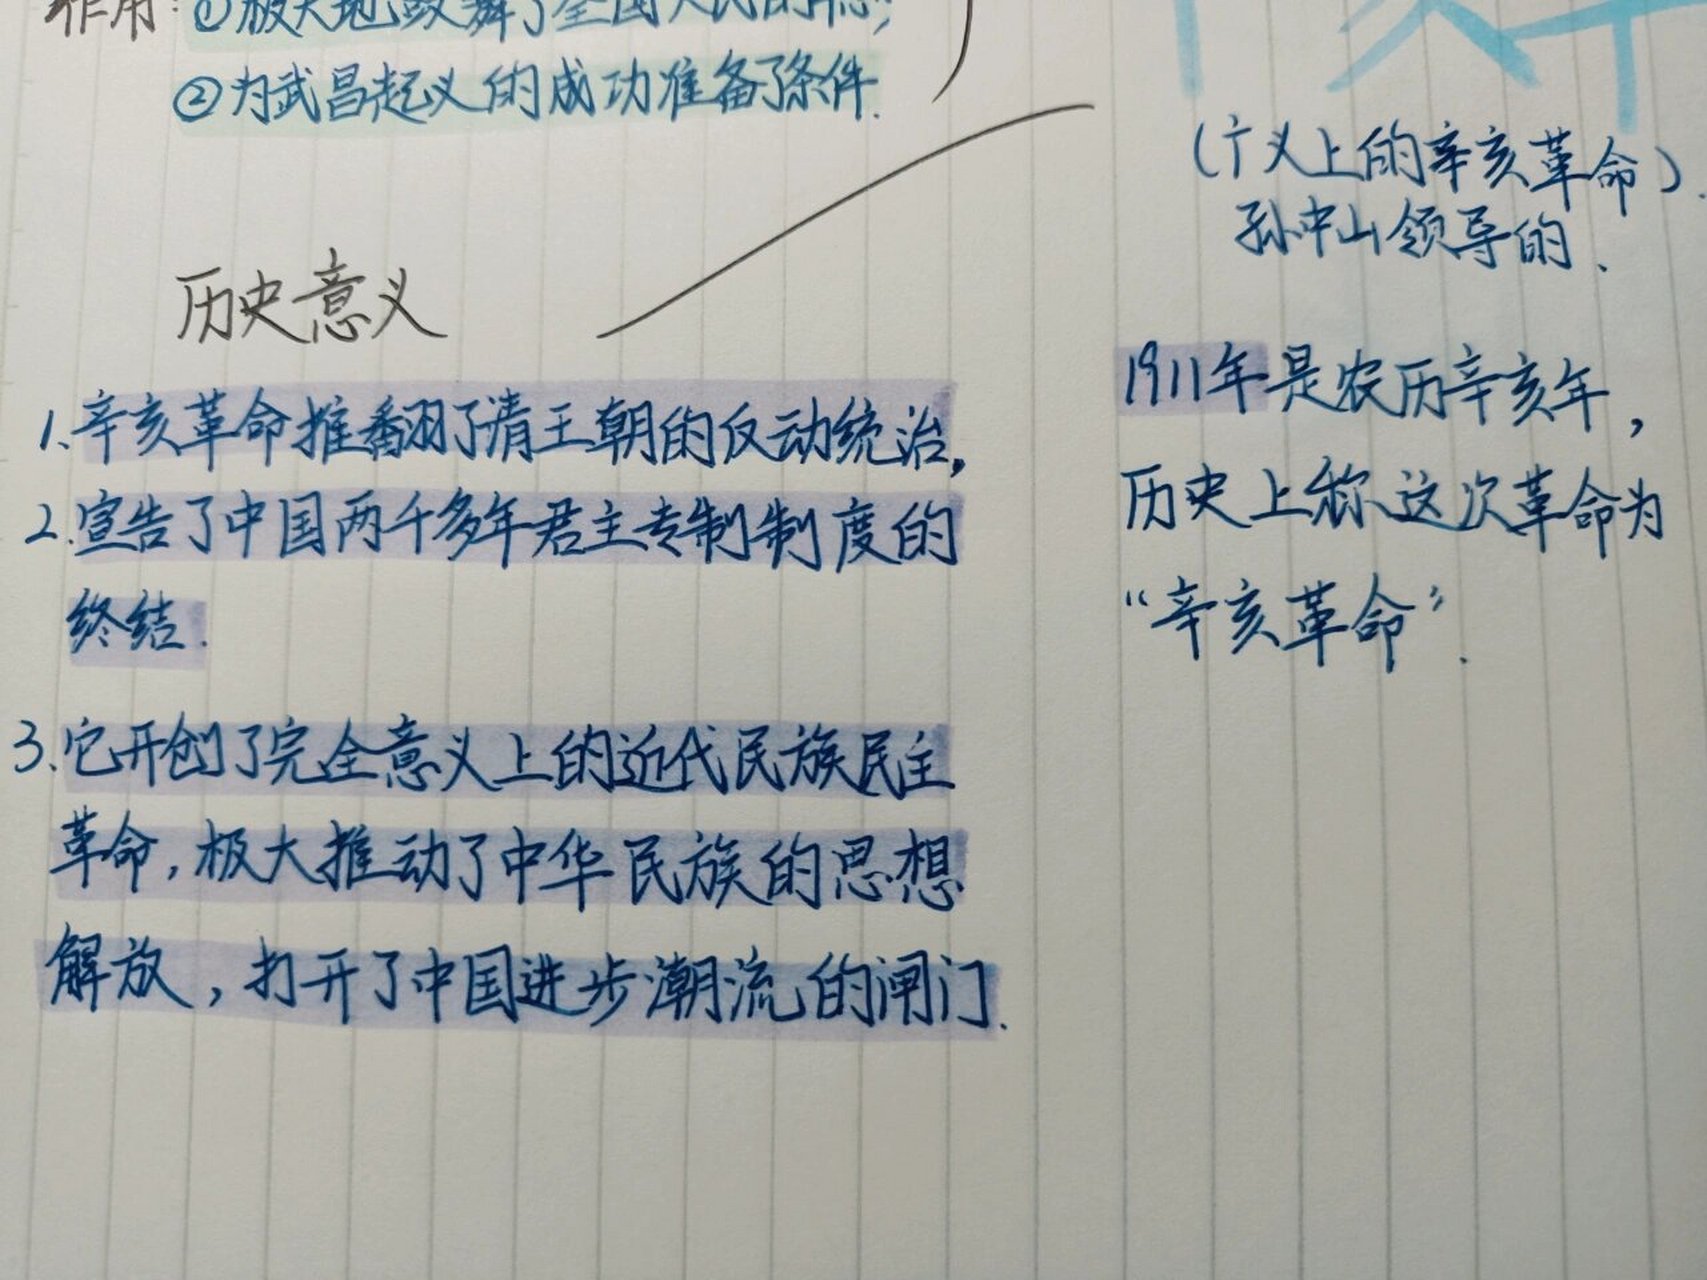 作用：①极大地鼓舞了全国人民的斗志；
②为武昌起义的成功准备了条件.
历史意义
1.辛亥革命推翻了清王朝的反动统治，
2.宣告了中国两千多年君主专制制度的
终结.
3.它开创了完全意义上的近代民族民主
革命，极大推动了中华民族的思想
解放，打开了中国进步潮流的闸门.
（广义上的辛亥革命）.
孙中山领导的.
1911年是农历辛亥年，
历史上称这次革命为
“辛亥革命”.